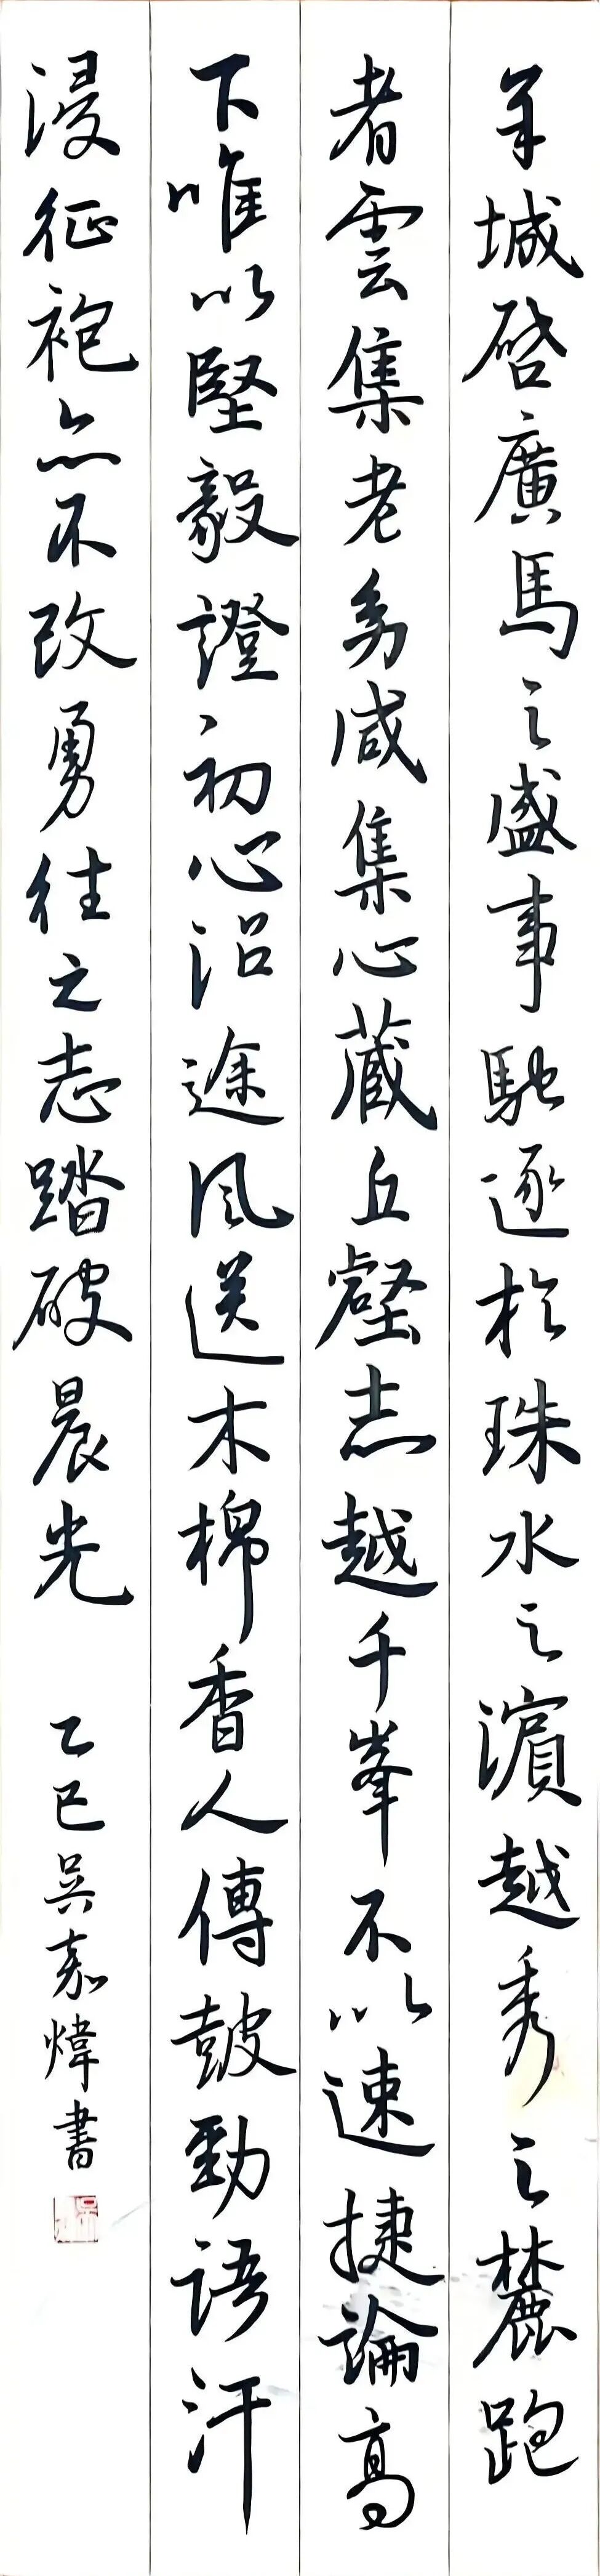 羊城啓廣馬之盛事馳逐於珠水之濵越秀之麓跑
者雲集老幼咸集心藏丘壑志越千峯不以速捷論高
下唯以堅毅證初心沿途風送木棉香人傳鼓勁語汗
浸征袍亦不改勇往之志踏破晨光
乙巳吳嘉煒書